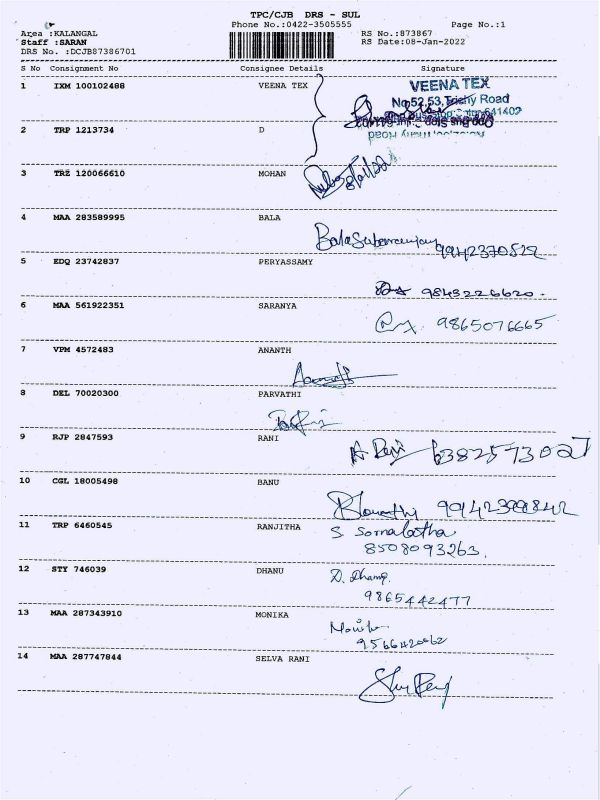 TPC/CJB DRS - SUL
Phone No.:0422-3505555 Page No.:1
Area :KALANGAL RS No.:873867
Staff :SARAN RS Date:08-Jan-2022
DRS No. :DCJB87386701
S No Consignment No Consignee Details Signature
1 IXM 100102488 VEENA TEX
VEENA TEX
No.52,53, Trichy Road
2 TRP 1213734 D
3 TRZ 120066610 MOHAN
4 MAA 283589995 BALA
Balasubramaniyan 9942370522
5 EDQ 23742837 PERYASSAMY
9843226620.
6 MAA 561922351 SARANYA
9865076665
7 VPM 4572483 ANANTH
8 DEL 70020300 PARVATHI
9 RJP 2847593 RANI
A Rani 6382573027
10 CGL 18005498 BANU
11 TRP 6460545 RANJITHA
S Sornalatha
8508093263.
12 STY 746039 DHANU
D. Dhanu
9865442477
13 MAA 287343910 MONIKA
Monika
14 MAA 287747844 SELVA RANI